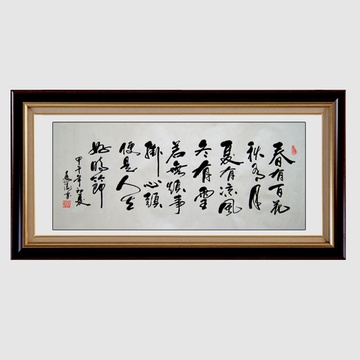 春有百花
秋有月
夏有凉風
冬有雪
若無煩事
掛心頭
便是人间
好時節
甲午年初夏
書